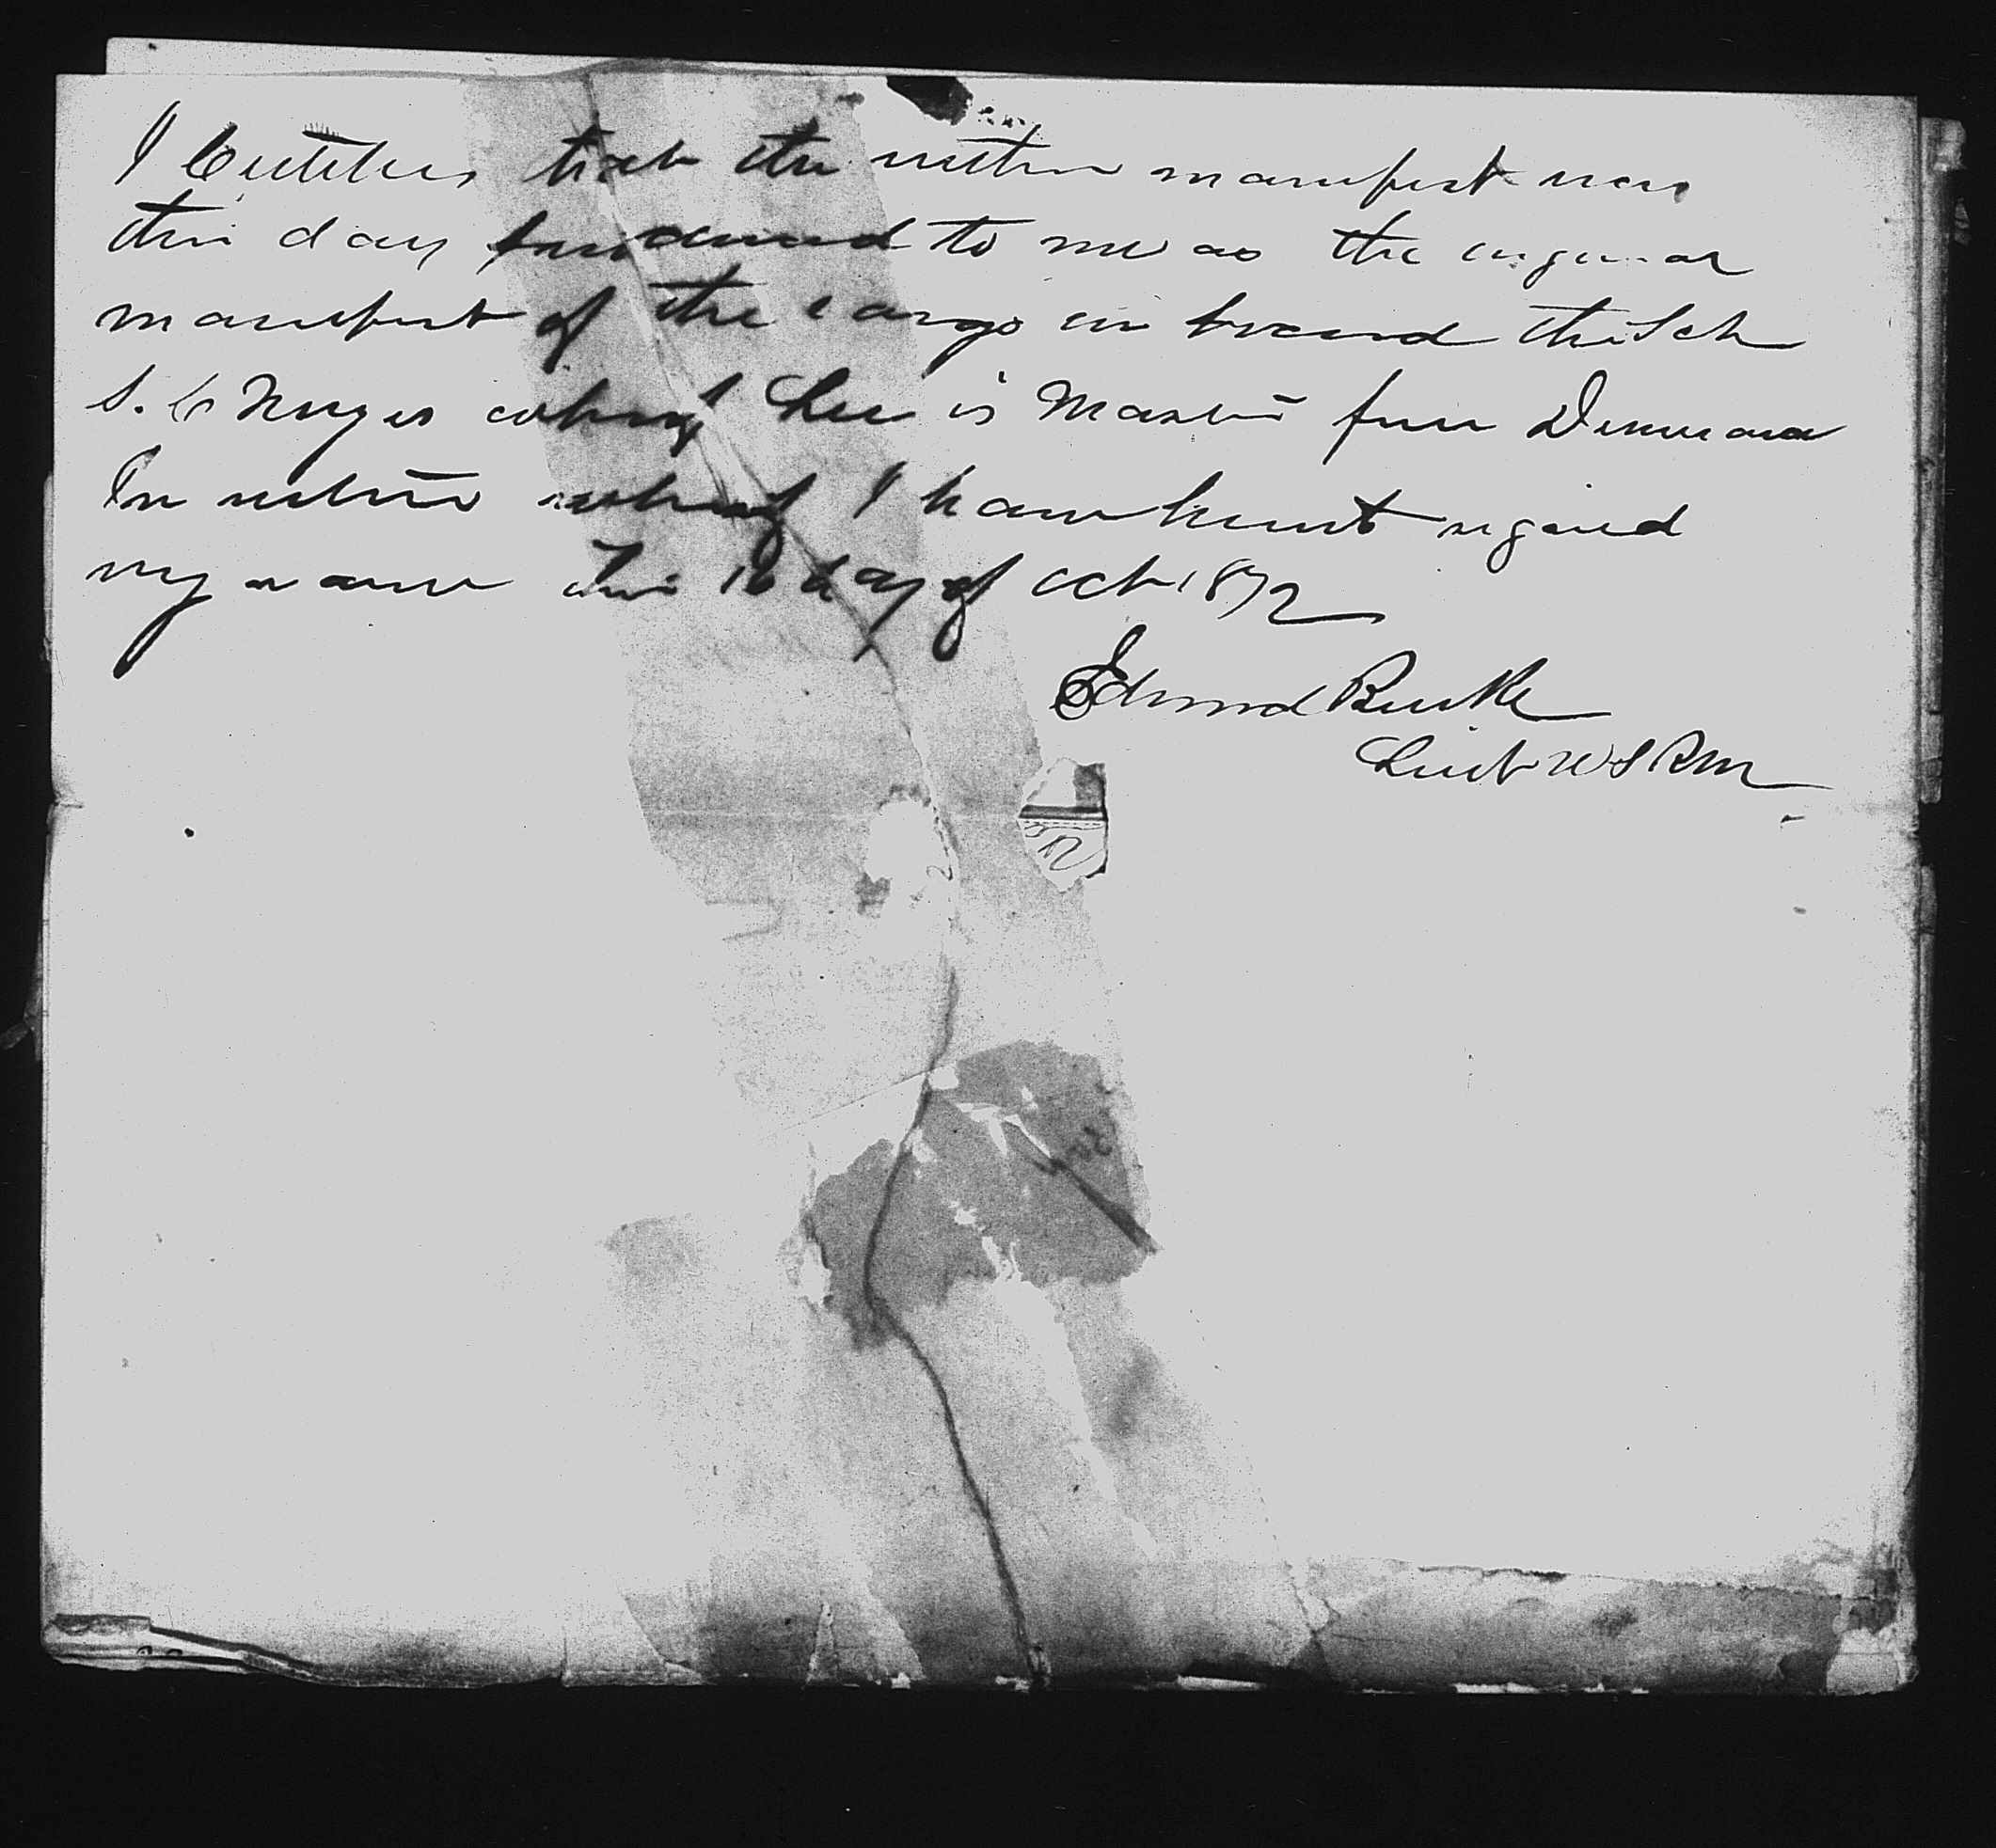 I Certify that the within manifest was
this day produced to me as the original
manifest of the cargo on board the Sch
S. C whereof Lee is Master from Demerara
In witness whereof I have hereunto signed
my name this 16 day of Oct 1872
Edmund Burke
Lieut U S R M